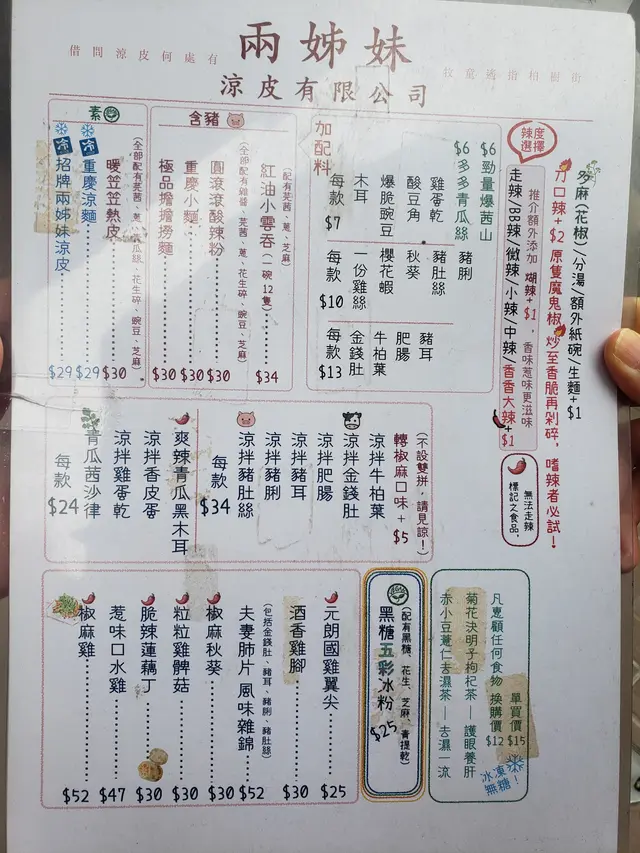 借問涼皮何處有
兩姊妹
牧童遙指相樹街
涼皮有限公司
辣度選擇
多麻(花椒)/分湯/額外紙碗、生麵+$1
刀口辣+$2 原隻魔鬼椒,炒至香脆再剁碎,嗜辣者必試!
推介額外添加 煳辣+$1,香味惹味更滋味
走辣/BB辣/微辣/小辣/中辣/香香大辣+$1
標記之食品,無法走辣
加配料
$6 勁量爆茜山
$6 多多青瓜絲
雞蛋乾
酸豆角
爆脆豌豆
木耳
每款 $7
豬脷
豬肚絲
秋葵
櫻花蝦
一份雞絲
每款 $10
豬耳
肥腸
牛柏葉
金錢肚
每款 $13
含豬
(配有芫茜、蔥、芝麻)
紅油小雲吞(一碗12隻) $34
(全部配有雜醬、芫茜、蔥、花生碎、豌豆、芝麻)
圓滾滾酸辣粉 $30
重慶小麵 $30
極品擔擔撈麵 $30
素
(全部配有芫茜、蔥、瓜絲、花生碎、豌豆、芝麻)
暖笠笠熱皮 $30
冷 重慶涼麵 $29
冷 招牌兩姊妹涼皮 $29
(不設雙拼,請見諒!)
轉椒麻口味+$5
涼拌牛柏葉
涼拌金錢肚
涼拌肥腸
涼拌豬耳
涼拌豬脷
涼拌豬肚絲
每款 $34
爽辣青瓜黑木耳
涼拌香皮蛋
涼拌雞蛋乾
青瓜茜沙律
每款 $24
凡惠顧任何食物 單買價 $15
換購價 $12
菊花決明子枸杞茶—護眼養肝
赤小豆薏仁去濕茶—去濕一流
冰凍無糖!
(配有黑糖、花生、芝麻、青提乾)
黑糖五彩冰粉 $25
元朗國雞翼尖 $25
酒香雞腳 $30
(包括金錢肚、豬耳、豬脷、豬肚絲)
夫妻肺片 風味雜錦 $52
椒麻秋葵 $30
粒粒雞髀菇 $30
脆辣蓮藕丁 $30
惹味口水雞 $47
椒麻雞 $52